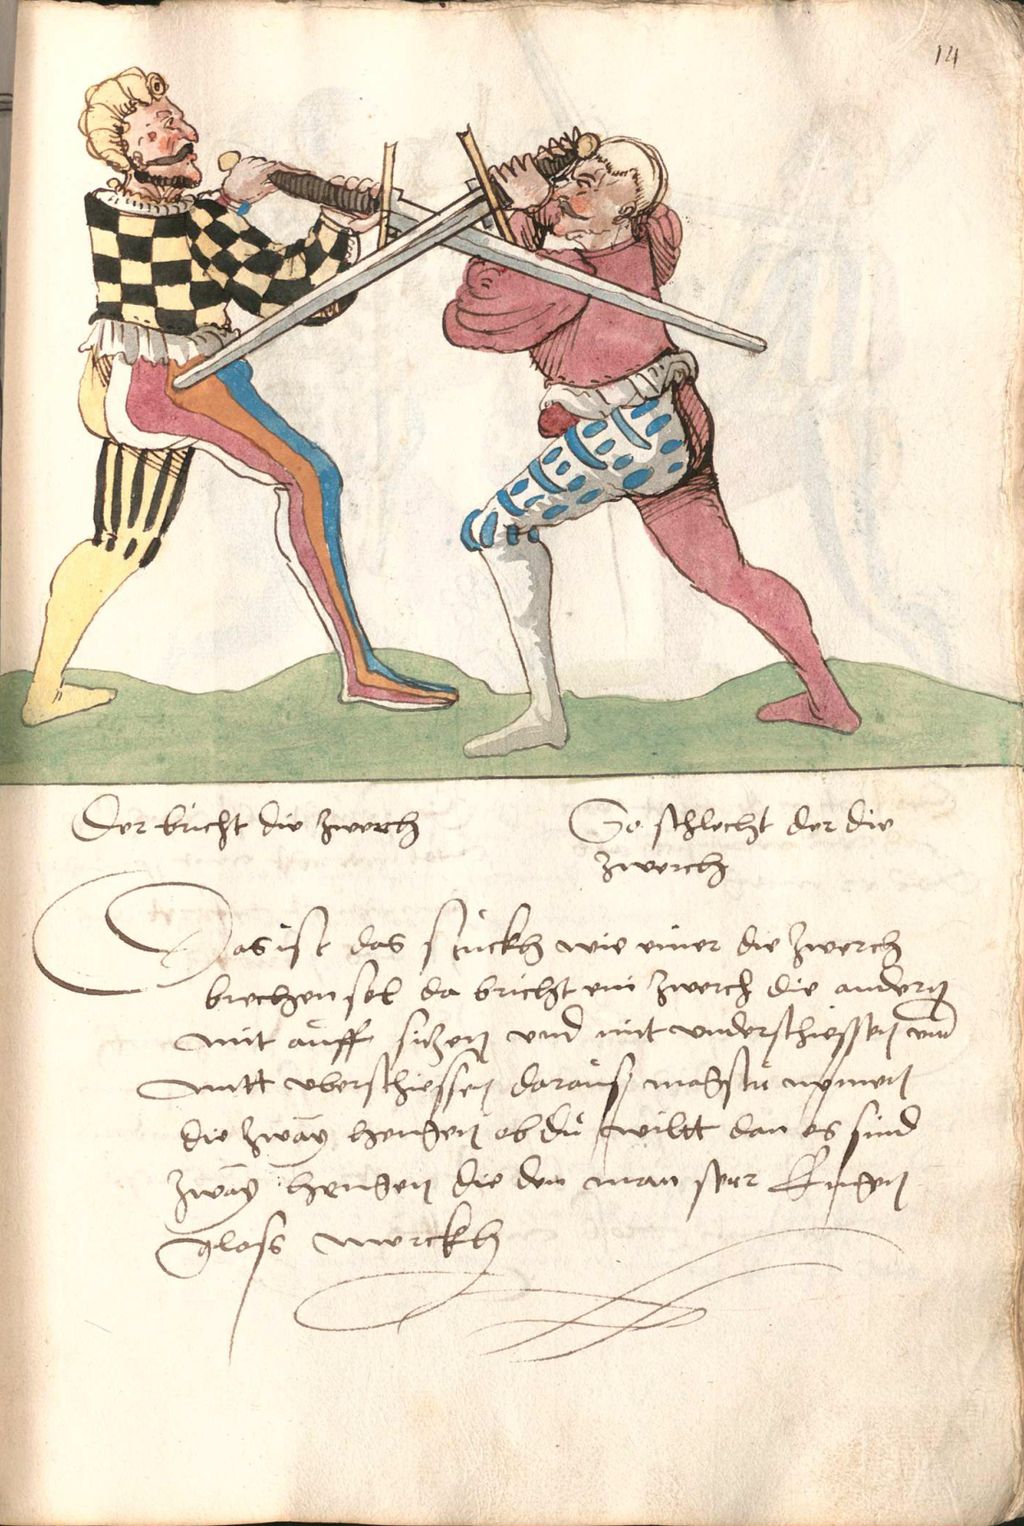 14
Der bricht die zwerch
So schlecht der die
zwerch
Das ist das stuckh wie einer die zwerch
brechen sol da bricht ein zwerch die andern
mit auff sitzen vnd mit vnderschiessen vnd
mitt vberschiessen darauß magstu nemen
die zway hengen ob du wiltt dan es sind
zway hengen die den man ser
gloss merckh